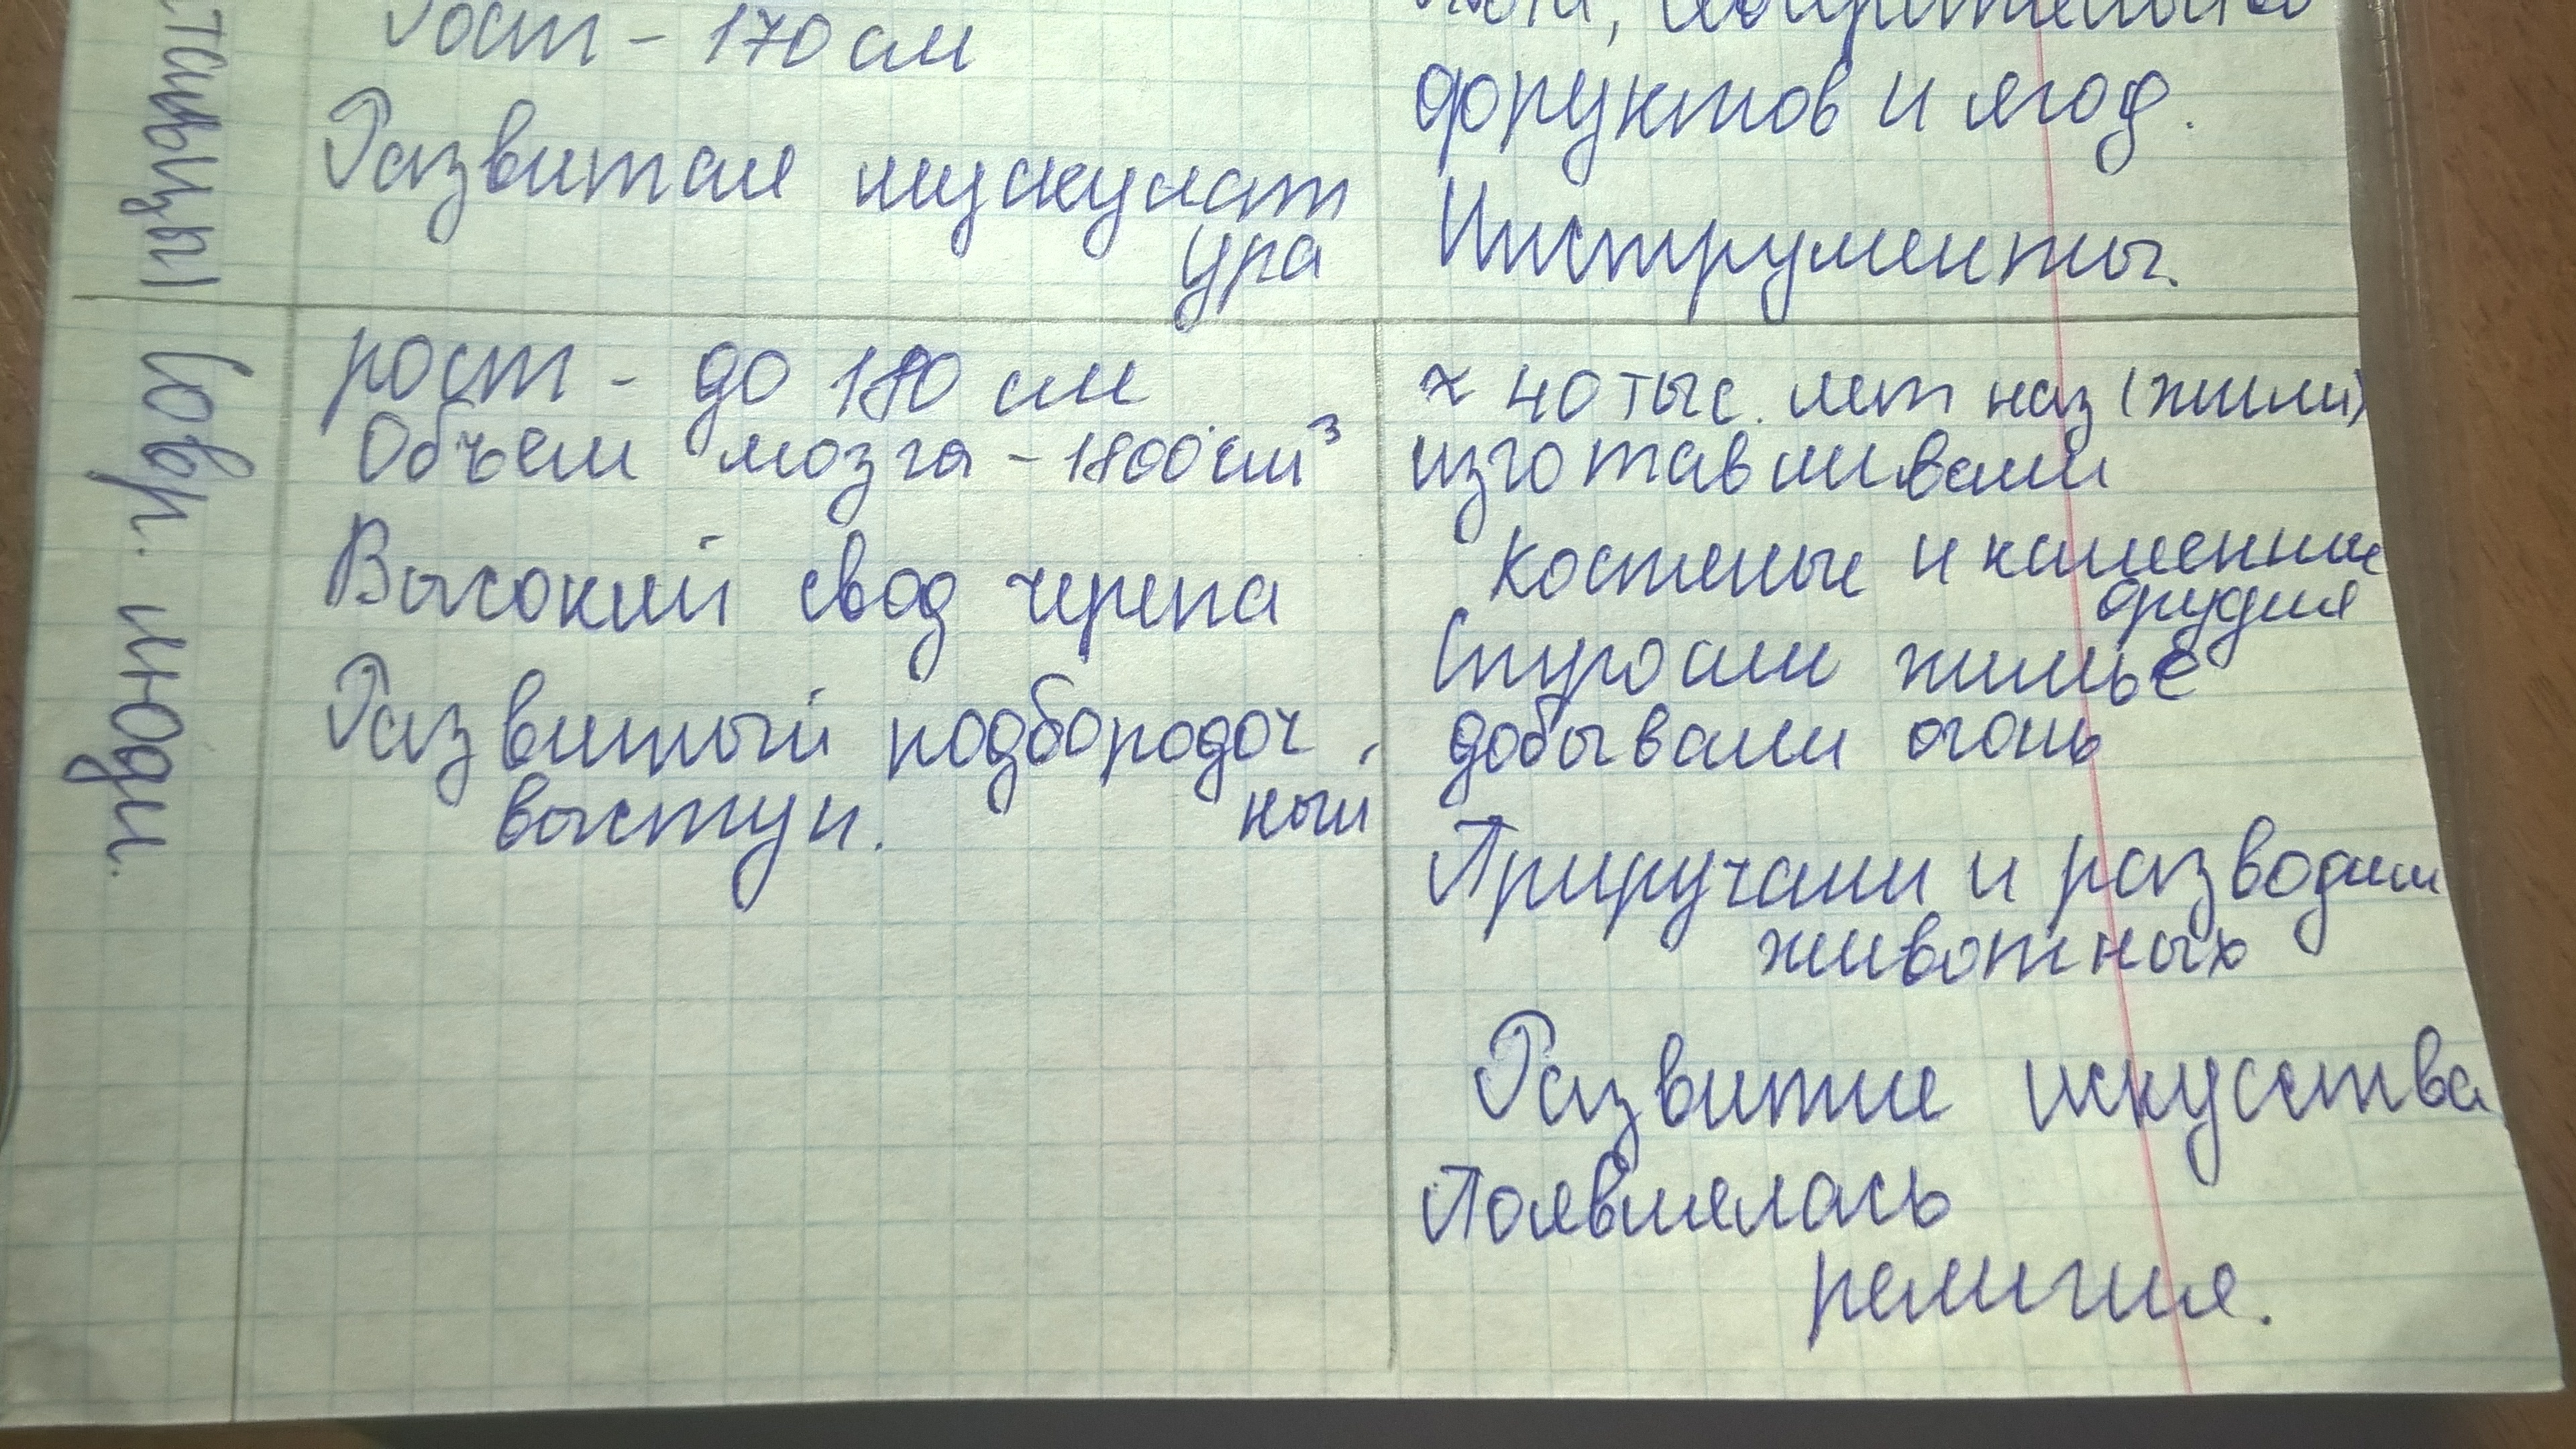 Рост - 170 см
Развитая мускулат
ура
фруктов и ягод.
Инструменты.
Совр. люди.
рост - до 180 см
Объем мозга - 1800 см³
Высокий свод черепа
Развитый подбородоч
ный
выступ.
≈ 40 тыс. лет наз (жили)
изготавливали
костяные и каменные
орудия
Строили жильё
добывали огонь
Приручали и разводили
животных
Развитие искусства
Появилась
религия.